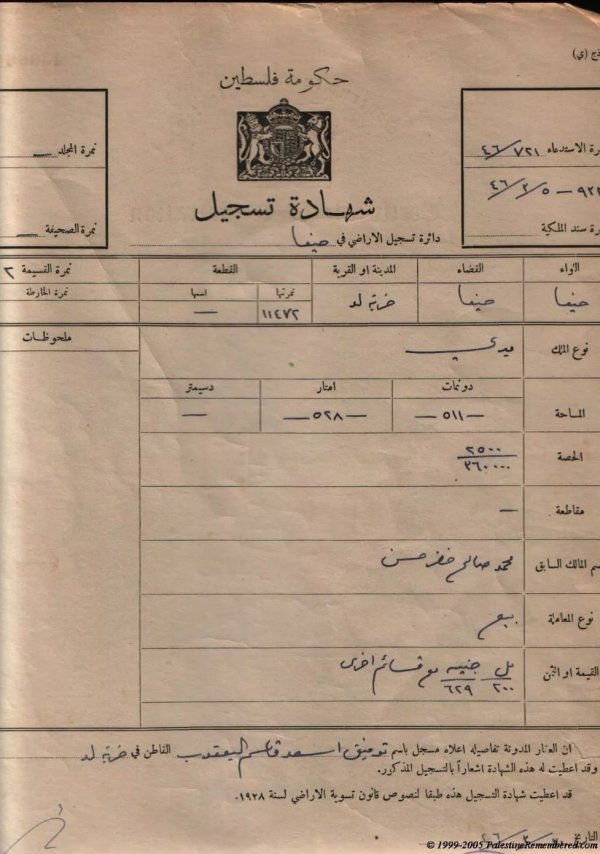 ذج (ي)
حكومة فلسطين
نمرة المجلد —
رة الاستدعاء ٧٢١/٤٦
شهادة تسجيل
نمرة الصحيفة —
رة سند الملكية
دائرة تسجيل الاراضي في حيفا
اللواء القضاء المدينة او القرية القطعة نمرة القسيمة ٢
نمرتها اسمها نمرة الخارطة
حيفا حيفا خربة لد ١١٤٧٢ —
نوع الملك ميري ملحوظات
دونمات امتار دسيمتر
المساحة — ٥١١ — — ٥٢٨ — —
الحصة ٢٥٠٠
٣٦٠٠٠٠
مقاطعة —
سم المالك السابق محمد صالح خضر حسن
نوع المعاملة بيع
القيمة او الثمن مل جنيه مع قسائم اخرى
٢٠٠ ٦٢٩
ان العقار المدونة تفاصيله اعلاه مسجل باسم توفيق اسعد قاسم اليعقوب القاطن في خربة لد
وقد اعطيت له هذه الشهادة اشعاراً بالتسجيل المذكور.
قد اعطيت شهادة التسجيل هذه طبقا لنصوص قانون تسوية الاراضي لسنة ١٩٢٨.
التاريخ
© 1999-2005 PalestineRemembered.com